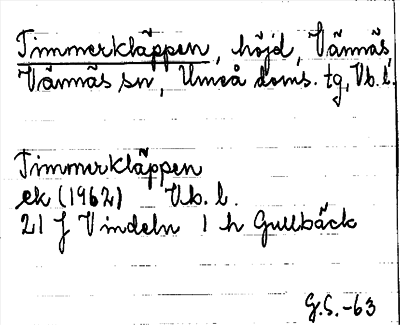 Timmerkläppen, höjd, Vännäs
Vännäs sn, Umeå doms. tg, Vb. l.
Timmerkläppen
ek (1962) Vb. l.
21 J Vindeln 1 h Gullbäck
G.S. -63